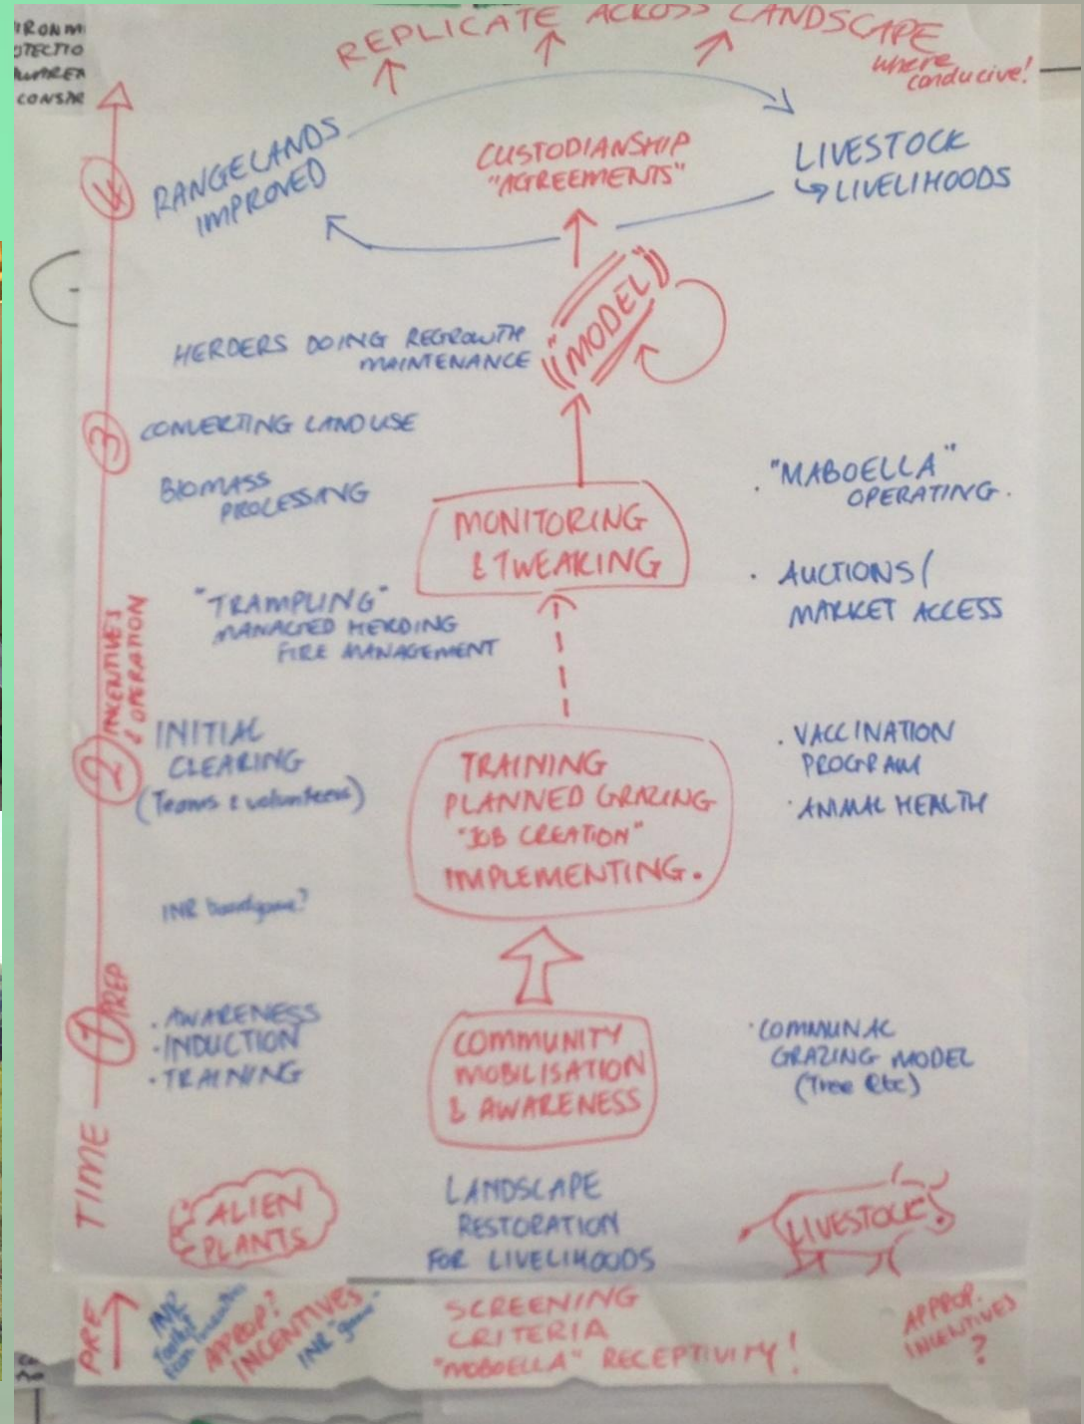 REPLICATE ACROSS LANDSCAPE
where
conducive!
RANGELANDS
IMPROVED
CUSTODIANSHIP
"AGREEMENTS"
LIVESTOCK
↳ LIVELIHOODS
4
HERDERS DOING REGROWTH
MAINTENANCE
"MODEL"
3
CONVERTING LAND USE
BIOMASS
PROCESSING
MONITORING
& TWEAKING
"MABOELLA"
OPERATING.
· AUCTIONS/
MARKET ACCESS
"TRAMPLING"
MANAGED HERDING
FIRE MANAGEMENT
INCENTIVES
& OPERATION
2
INITIAL
CLEARING
(Teams & volunteers)
TRAINING
PLANNED GRAZING
"JOB CREATION"
IMPLEMENTING.
· VACCINATION
PROGRAM
· ANIMAL HEALTH
INR boardgame?
1 PREP
· AWARENESS
· INDUCTION
· TRAINING
COMMUNITY
MOBILISATION
& AWARENESS
· COMMUNAL
GRAZING MODEL
(Tree etc)
TIME
ALIEN
PLANTS
LANDSCAPE
RESTORATION
FOR LIVELIHOODS
LIVESTOCK
PRE
INR
Toolkit
APPROP?
INCENTIVES
INR "game"
SCREENING
CRITERIA
"MOBOELLA" RECEPTIVITY!
APPROP.
INCENTIVES
?